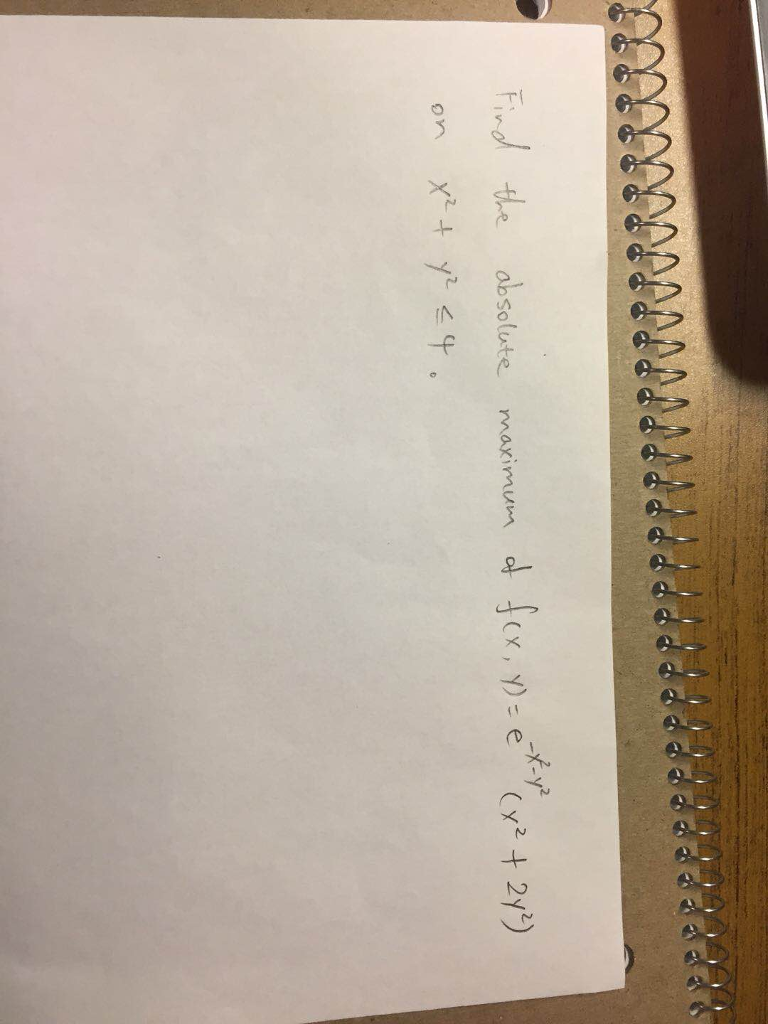 Find the absolute maximum of f(x, y) = e^{-x²-y²} (x² + 2y²)
on x² + y² ≤ 4.